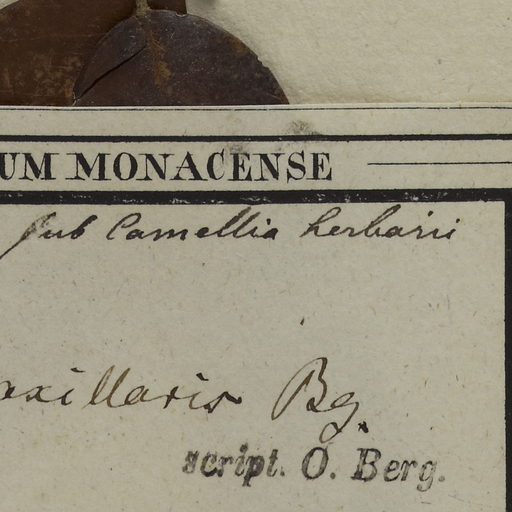 UM MONACENSE
sub Camellia herbarii
axillaris Bg.
script. O. Berg.